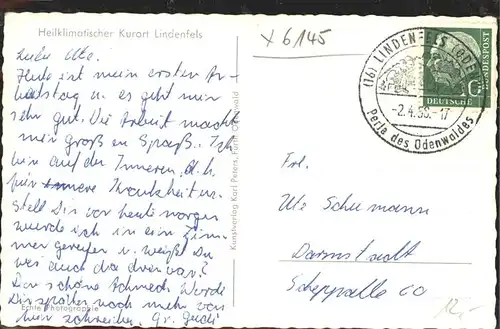 Heilklimatischer Kurort Lindenfels
x 6145
Liebe Ute.
Heute ist mein ersten Ar-
beitstag u. es geht mir
sehr gut. Die Arbeit macht
mir großen Spaß. Ich
bin auf der Inneren, d. h.
hier innere Krankheiten.
Stell Dir vor heute morgen
wurde ich in ein Zim-
mer gerufen u. weißt Du
wer auch da drin war?
Der schöne Schmech. Werde
Dir später noch mehr von
hier schreiben. Gr.
Echte Photographie
Kunstverlag Karl Peters, Odenwald
(16) LINDENFELS (ODENW)
-2.4.58.-17
Perle des Odenwaldes
DEUTSCHE BUNDESPOST
Frl.
Ute Schumann
Darmstadt
12,-